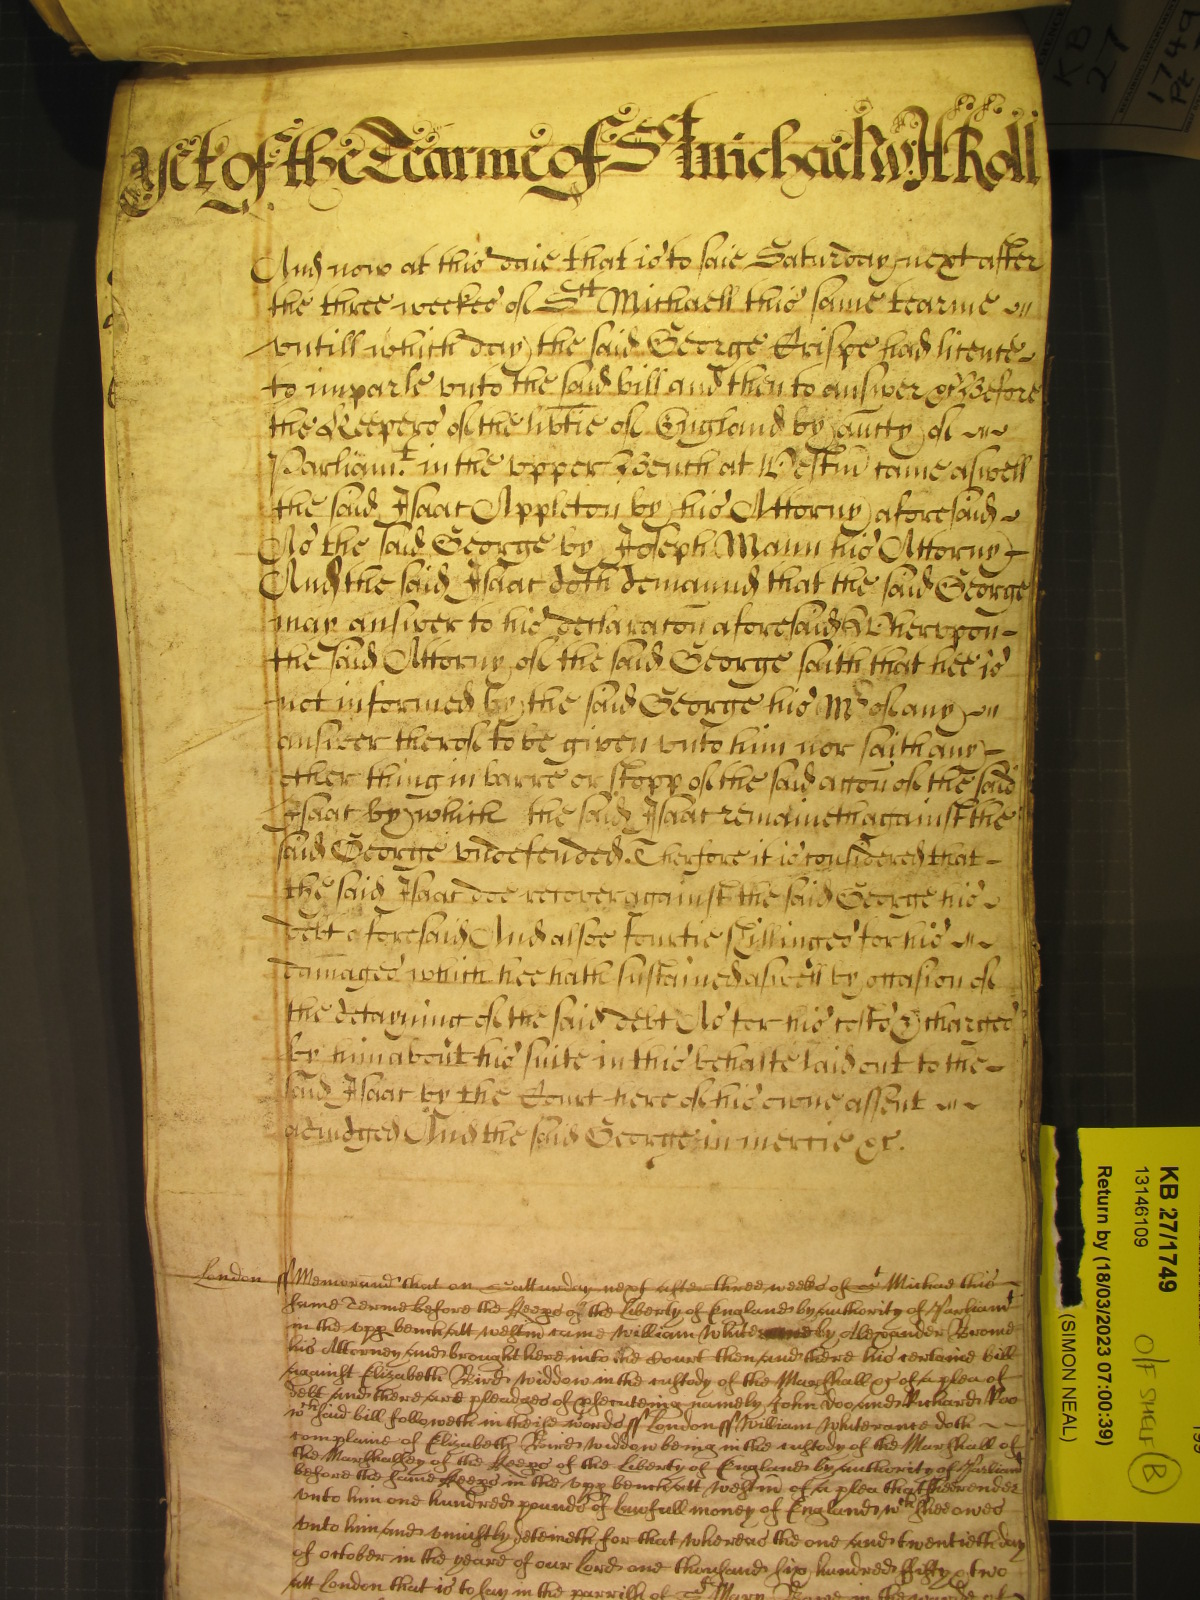 Yet of the Tearme of St Michael wth Roll
And now at this daie that is to saie Saturday next after
the three weekes of St Michaell this same tearme
untill which day the said George Crispe had licence
to imparle unto the said bill and then to answer &c Before
the Keepers of the libtie of England by autty of
Parliamt in the upper Bench at Westm came aswell
the said Isaac Appleton by his Attorny aforesaid
As the said George by Joseph Mann his Attorny
And the said Isaac doth demaund that the said George
may answer to his declaracon aforesaid Whereupon
the said Attorny of the said George saith that hee is
not informed by the said George his Mr of any
answer therof to be given unto him nor saith any
other thing in barre or stopp of the said accon of the said
Isaac by which the said Isaac remaineth against the
said George undefended. Therfore it is considered that
the said Isaac doe recover against the said George his
debt aforesaid And alsoe fourtie shillinges for his
damages which hee hath susteined aswell by occasion of
the detayning of the said debt As for his costs & charges
by him about his suite in this behalfe laid out to the
said Isaac by the Court here of his owne assent
adiudged And the said George in mercie &c.
London ss Memorand that on Satturday next after three weekes of St Michael this
same Terme before the Keeps of the Liberty of England by authority of Parliamt
in the upp bench att westm came William by Alexander Brome
his Attorney and brought here into the Court then and there his certaine bill
against Elizabeth Bird widdow in the custody of the Marshall &c of a plea of
debt and there are pleadges of psecuteing namely John Doo and Richard Roo
wch said bill followeth in theise words ss London ss William doth
complaine of Elizabeth Bird widdow being in the custody of the Marshall of
the Marshalsey of the Keeps of the Liberty of England by authority of Parliamt
before the same Keeps in the upp bench att westm of a plea that shee render
unto him one hundred pounds of lawfull money of England wch shee owes
unto him and uniustly deteineth for that whereas the one and twentieth day
of october in the yeare of our Lord one thousand six hundred fifty & two
att London that is to say in the parrish of St Mary in the warde of
KB 27/1749
13146109
Return by (18/03/2023 07:00:39)
(SIMON NEAL)
O/F SHELF B
KB
27
1749
Pt